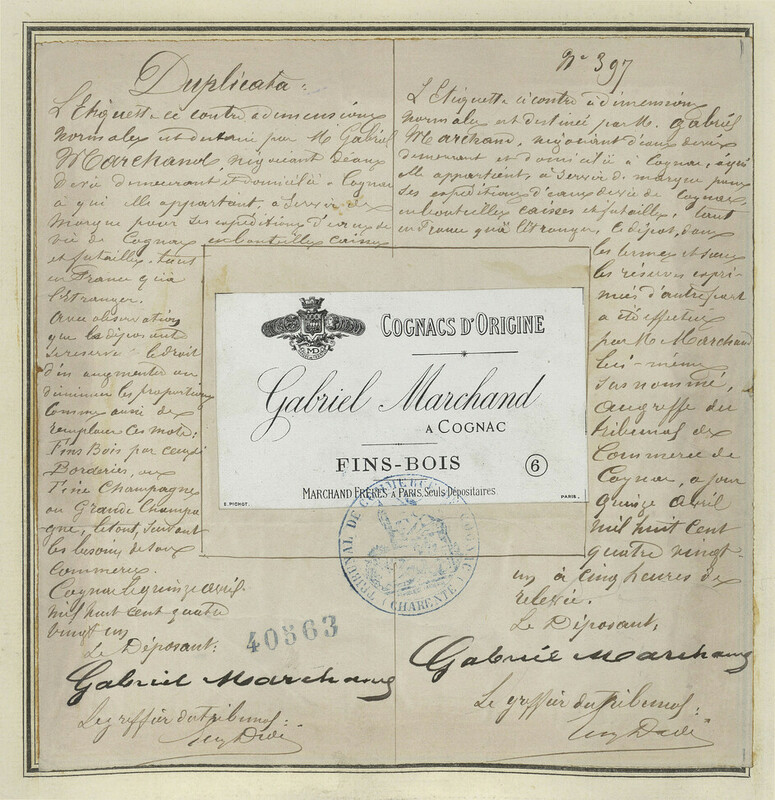 Duplicata:
L'Etiquette ci contre a dimensions
normales est destiné par M Gabriel
Marchand négociant d'eaux
de vie demeurant et domicilié à Cognac
à qui elle appartient, à servir de
marque pour ses expéditions d'eaux de
vie de Cognac en bouteilles caisses
et futailles, tant
en France qu'à
l'Etranger.
Avec observation
que le déposant
se réserve le droit
d'en augmenter ou
diminuer les proportions
comme aussi de
remplacer ces mots:
Fins Bois par ceux de
Borderies, ou
Fine Champagne
ou Grande Champa
gne, le tout, suivant
les besoins de son
commerce.
Cognac le quinze avril
mil huit cent quatre
vingt un
Le Déposant:
Gabriel Marchand
Le greffier du tribunal:
40563
N° 397
L'Etiquette ci contre à dimensions
normales est destinée par M. Gabriel
Marchand, négociant d'eaux de vie
demeurant et domicilié à Cognac, à qui
elle appartient, à servir de marque pour
ses expéditions d'eaux de vie de Cognac
en bouteilles caisses et futailles, tant
en France qu'à l'Etranger. Le dépôt, dans
les termes et sous
les réserves expri-
més d'autre part
a été effectué
par M. Marchand
lui-même
sus nommé,
au greffe du
tribunal de
Commerce de
Cognac, ce jour
quinze avril
mil huit cent
quatre vingt-
un à cinq heures de
relevée.
Le Déposant,
Gabriel Marchand
Le greffier du tribunal:
COGNACS D'ORIGINE
MD
Gabriel Marchand
A COGNAC
FINS-BOIS
6
MARCHAND FRÈRES À PARIS, Seuls Dépositaires
E. PICHOT.
PARIS.
TRIBUNAL DE COMMERCE DE COGNAC
(CHARENTE)